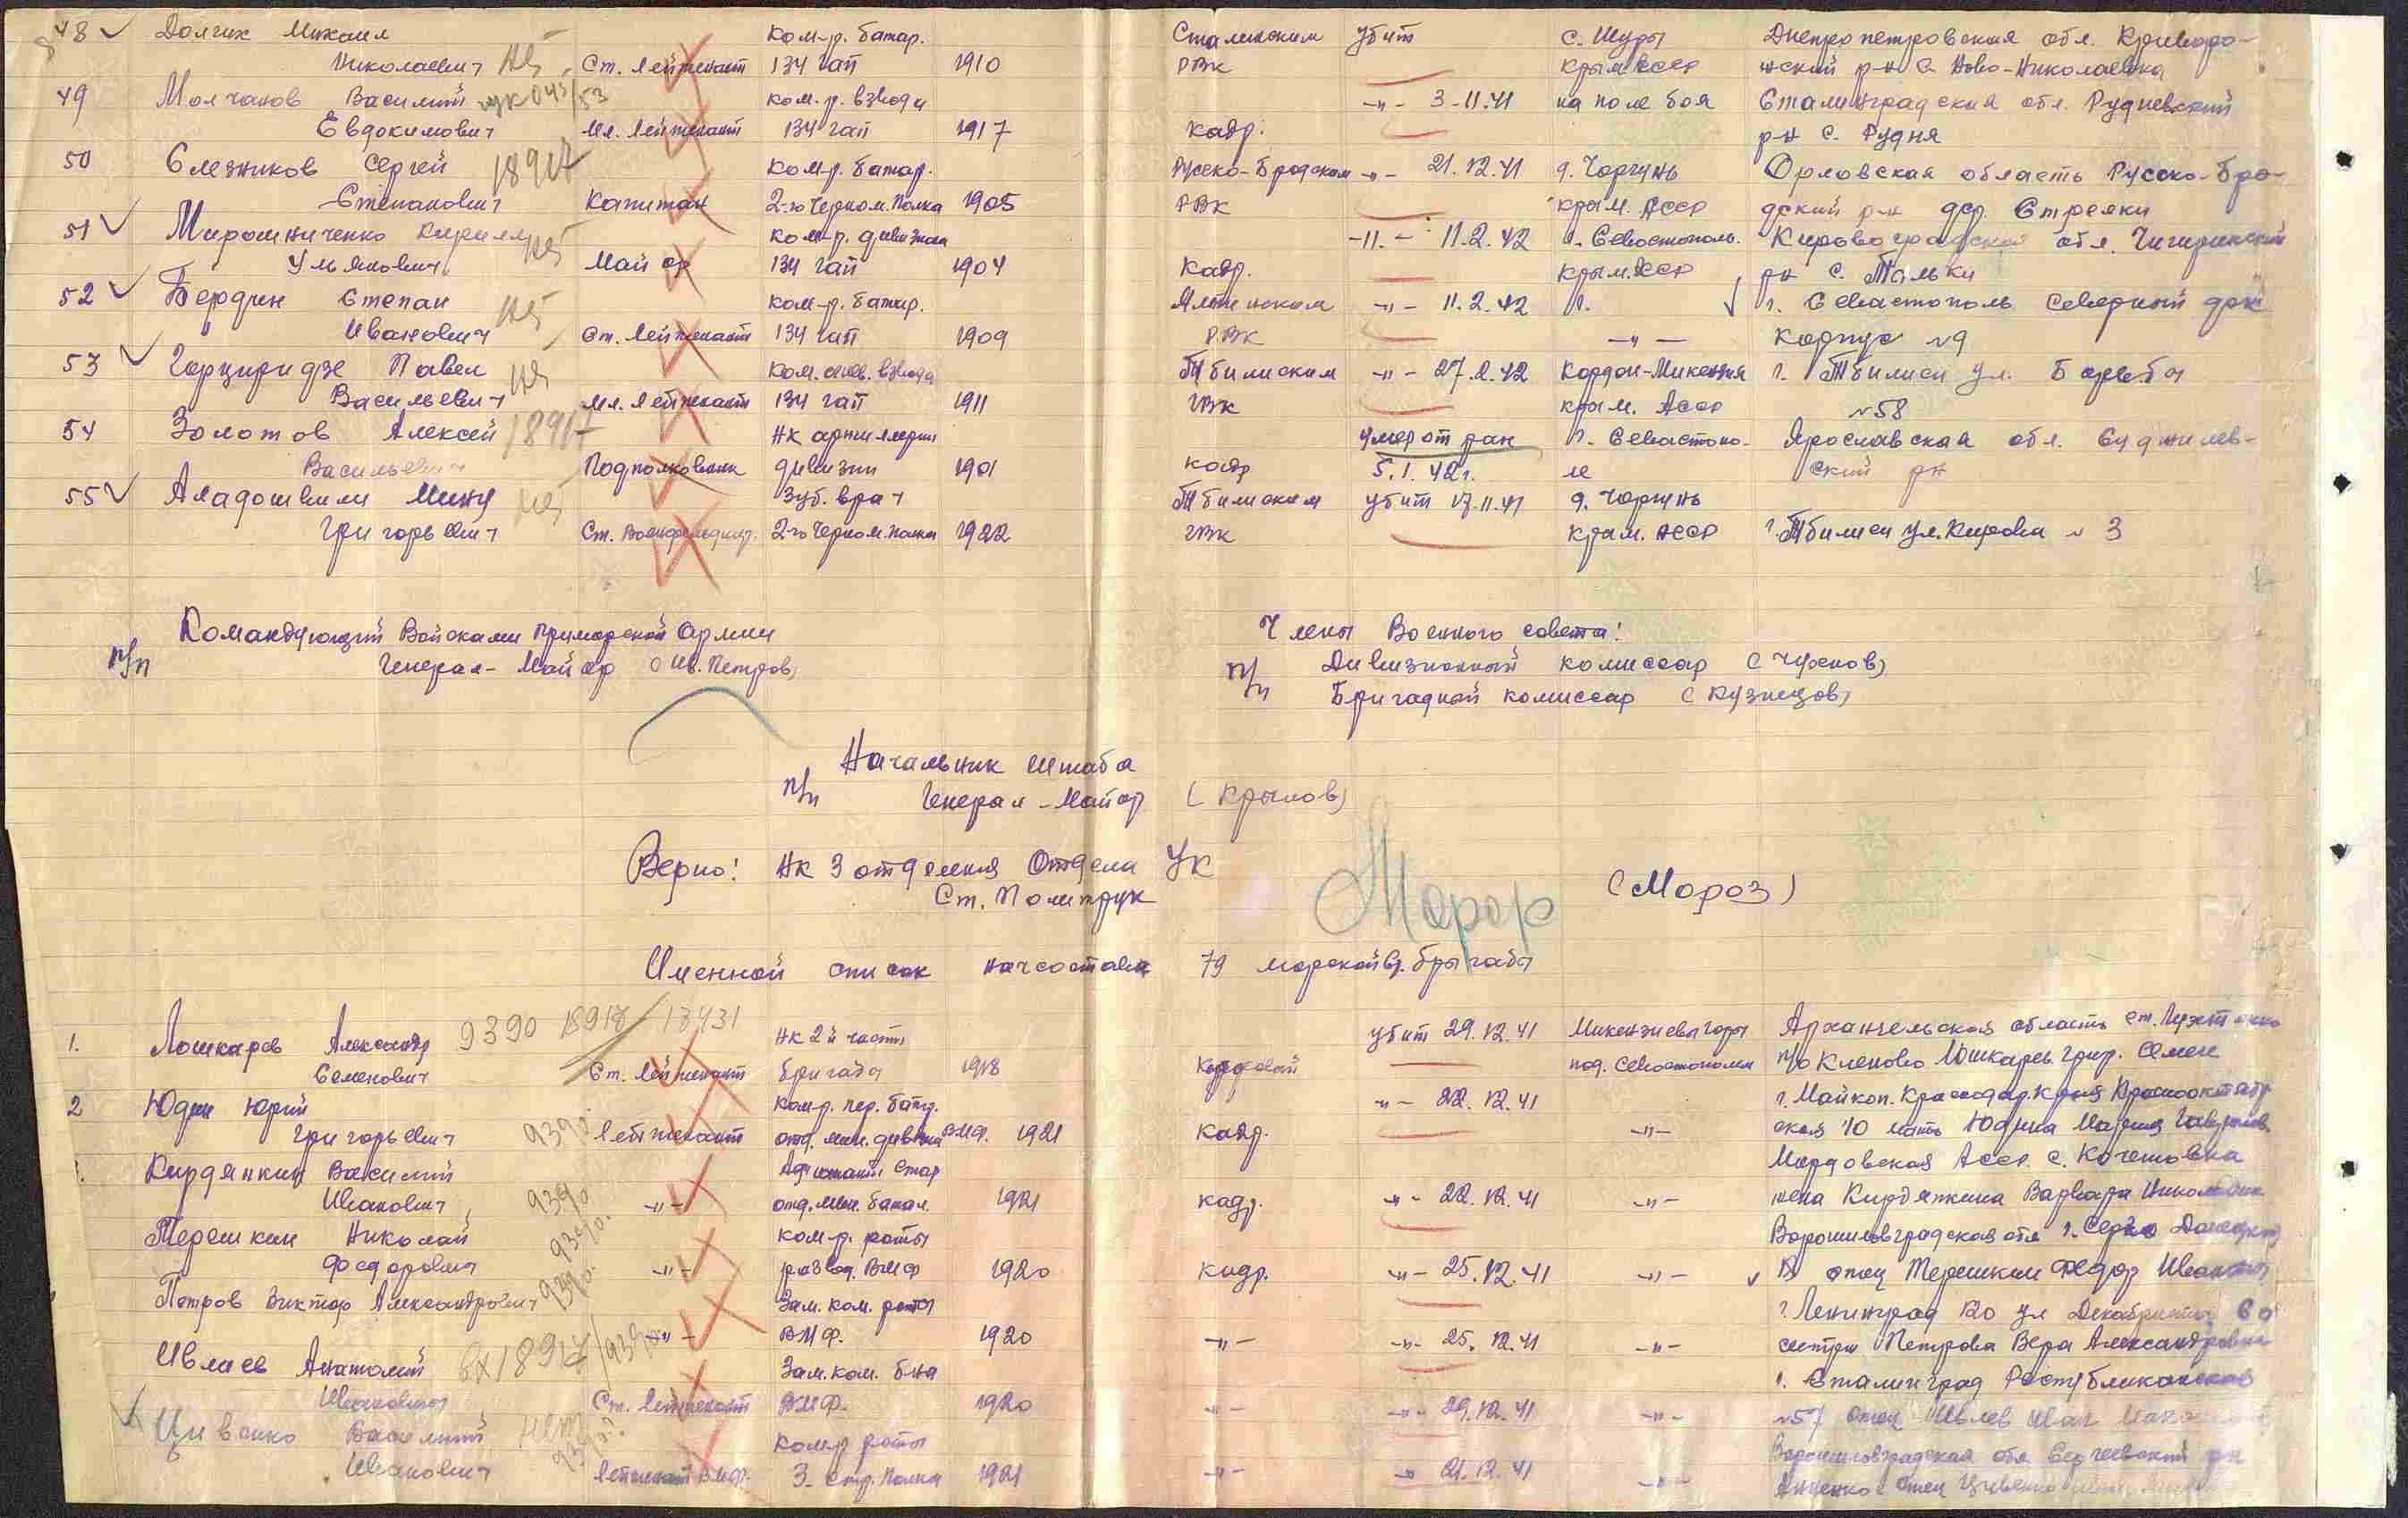 48 Долгих Михаил ком-р. батар. Сталинским убит с. Шуры Днепропетровская обл. Криворо-
Николаевич Ст. Лейтенант 134 гап 1910 РВК Крым. АССР жский р-н с. Ново-Николаевка
49 Молчанов Василий ком-р. взвода -"- 3-11.41 на поле боя Сталинградская обл. Рудневский
Евдокимович Мл. Лейтенант 134 гап 1917 кадр. р-н с. Рудня
50 Слезников Сергей 18917 ком-р. батар. Русско-Бродским -"- 21.12.41 д. Чоргунь Орловская область Русско-Бро-
Степанович Капитан 2-го Черном. Полка 1905 РВК Крым. АССР дский р-н дер. Стрелки
51 Мирошниченко Кирилл ком-р. дивизиона -"- 11.2.42 г. Севастополь. Кировоградская обл. Чигиринский
Ульянович Майор 134 гап 1904 Кадр. Крым. АССР р-н с. Тальки
52 Бердин Степан ком-р. батар. Ялтинском -"- 11.2.42 г. г. Севастополь Северный док
Иванович Ст. Лейтенант 134 гап 1909 РВК -"- корпус №9
53 Горциридзе Павел ком. огнев. взвода Тбилиским -"- 27.2.42 Кордон-Микензия г. Тбилиси ул. Борьбы
Васильевич Мл. Лейтенант 134 гап 1911 ГВК Крым. АССР №58
54 Золотов Алексей 18917 НК артиллерии умер от ран г. Севастопо- Ярославская обл.
Васильевич Подполковник дивизии 1901 кадр 5.1.42г. ле ский р-н
55 Аладошвили Мину Зуб. врач Тбилиским убит 17.11.41 д. Чоргунь
Григорьевич Ст. Военфельдшер. 2-го Черном. Полка 1922 ГВК Крым. АССР г. Тбилиси ул. Кирова № 3
Командующий Войсками Приморской Армии Члены Военного совета:
п/п Генерал-Майор (Ив. Петров) п/п Дивизионный комиссар (Чухнов)
п/п Бригадный комиссар (Кузнецов)
Начальник Штаба
п/п Генерал-Майор (Крылов)
Верно: НК 3 отделения Отдела УК
Ст. Политрук Мороз (Мороз)
Именной список начсостава 79 морской бригады
1. Лошкарев Александр 9390 18918 13431 НК 2й части убит 29.12.41 Микензиевы горы Архангельская область
Семенович Ст. Лейтенант бригады 1918 Кадровый под. Севастополем п/о Кленово Лошкарев Григ. Семен
2 Юдин Юрий ком-р. пер. бат. -"- 22.12.41 г. Майкоп. Краснодар. края Краснооктябр
Григорьевич 9390. Лейтенант отд. мин. дивизиона ВМФ. 1921 кадр. -"- ская 10 мать Юдина Мария
Кирдянкин Василий Адъютант Стар Мордовская АССР. с. Кочетовка
Иванович 9390 -"- отд. мин. батал. 1921 кадр. -"- 22.12.41 -"- жена Кирдянкина Варвара
Терешкин Николай 9390. ком-р. роты Ворошиловградская обл г. Серго
Федорович -"- развед. ВМФ 1920 кадр. -"- 25.12.41 -"- отец Терешкин Федор Иванович
Петров Виктор Александрович 9390. Зам. ком. роты г. Ленинград ул Декабристов
-"- ВМФ. 1920 -"- -"- 25.12.41 -"- сестра Петрова Вера Александровна
Ивлиев Анатолий вх 18917/9390 Зам. ком. б-на г. Сталинград Республиканская
Иванович Ст. Лейтенант ВМФ. 1920 -"- -"- 29.12.41 -"- №57 отец Ивлев Иван
Цивенко Василий нет 9390? ком-р роты Ворошиловградская обл.
Иванович Лейтенант ВМФ. 3 стр. Полка 1921 -"- -"- 21.12.41 -"- отец Цивенко